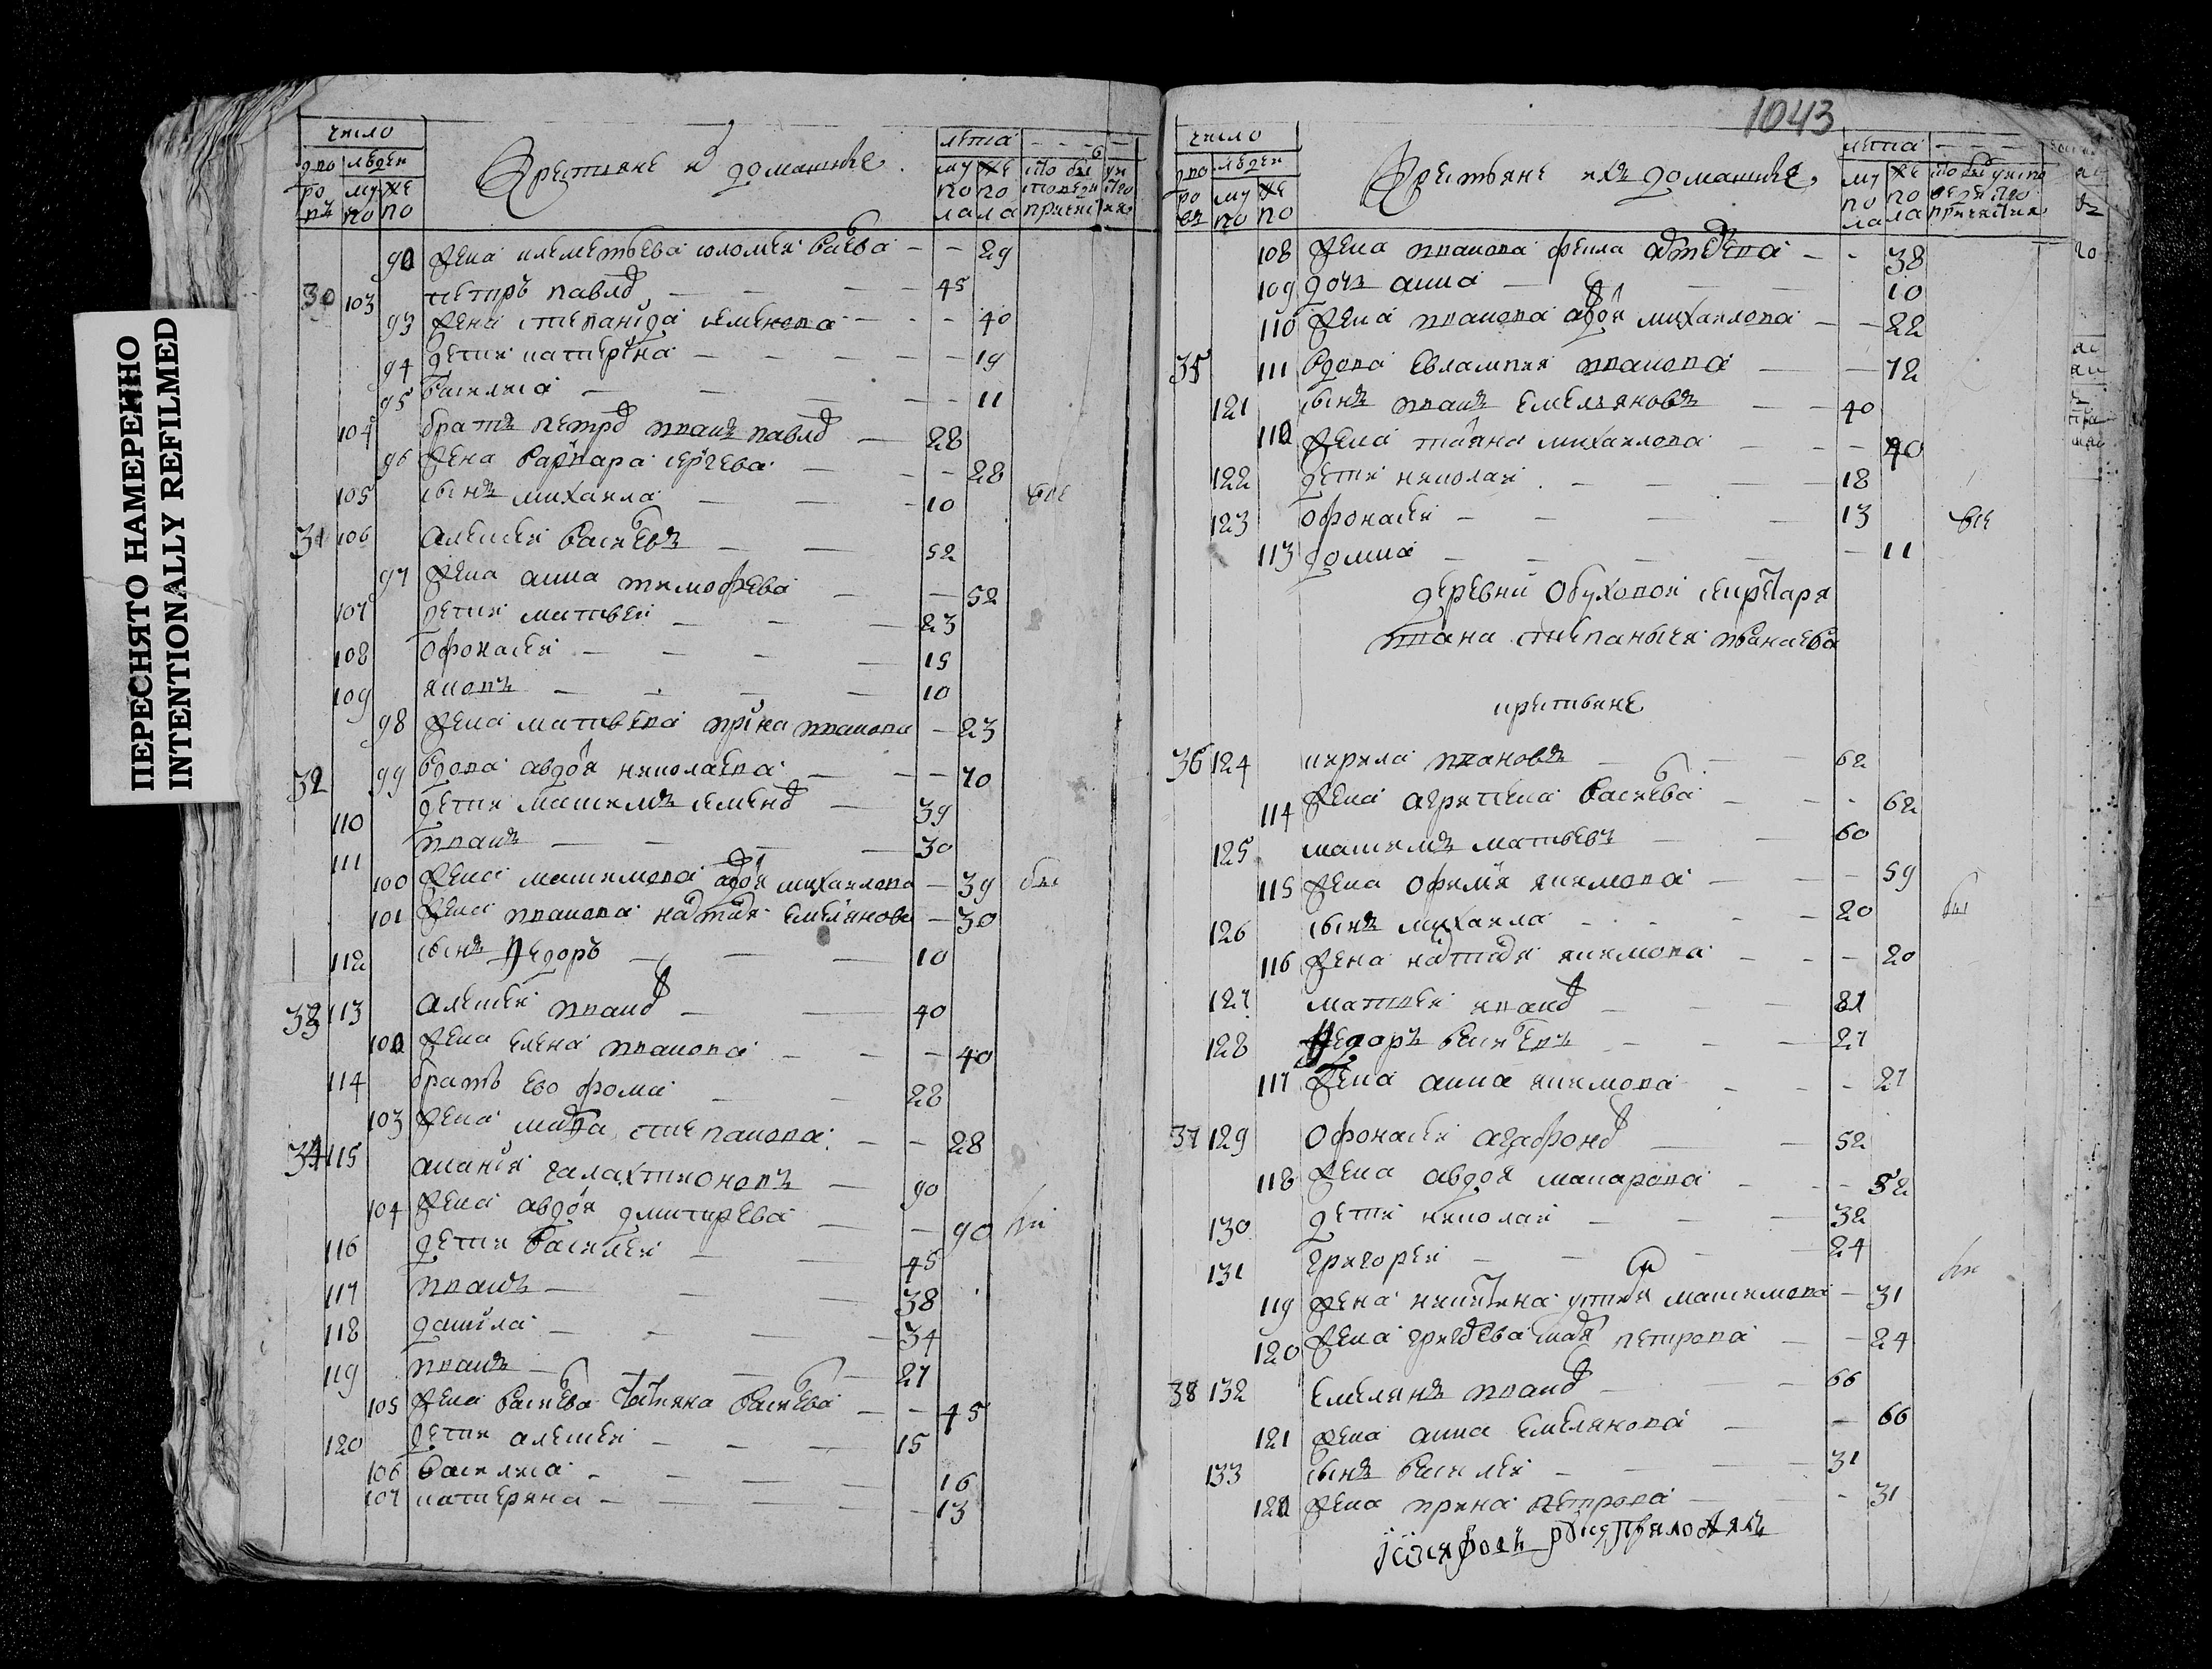 ПЕРЕСНЯТО НАМЕРЕННО
INTENTIONALLY REFILMED
число
дво людей
ро му же
въ по по
Крестьяне и домашние
лета
му же
по по
ла ла
90 жена клементьева соломея васева 29
30 103 петръ павло 45
93 жена степанида семенова 40
94 дети катерина 19
95 василиса 11
104 братъ петро иванъ павло 28
96 жена варвара сергева 28
105 сынъ михаила 10 все
31 106 алексеи васиевъ 52
97 жена анна тимофева 52
107 дети матвеи 23
108 офонасеи 15
109 яковъ 10
98 жена матвева ирина иванова 23
32 99 вдова авдоя николаева 70
110 дети максимъ семено 39
111 иванъ 30
100 жена максимова авдоя михаилова 39 все
101 жена иванова настася емелянова 30
112 сынъ Федоръ 10
33 113 алексеи ивано 40
102 жена елена иванова 40
114 братъ ево фома 28
103 жена степанова 28
34 115 ананiя галахтионовъ 90
104 жена авдоя дмитрева 90 все
116 дети василеи 45
117 иванъ 38
118 данила 34
119 иванъ 27
105 жена васиева татияна васиева 45
120 дети алексеи 15
106 василиса 16
107 катерина 13
1043
число
дво людей
ро му же
въ по по
Крестьяне ихъ домашние
лета
му же
по по
ла ла
108 жена иванова фекла 38
109 дочь анна 10
110 жена иванова авдоя михаилова 22
35 111 вдова евлампия иванова 72
121 сынъ иванъ емельяновъ 40
112 жена татяна михаилова 40
122 дети николаи 18
123 офонасеи 13 все
113 домна 11
деревни обуховой секретаря
ивана степаныча
кретьяне
36 124 кирила ивановъ 62
114 жена агрипена васиева 62
125 максимъ матвевъ 60
115 жена офимя якимова 59
126 сынъ михаила 20 все
116 жена настася якимова 20
127 матвеи ивано 21
128 Федоръ васиевъ 27
117 жена анна якимова 27
37 129 офонасеи агафоно 52
118 жена авдоя макарова 52
130 дети николаи 32
131 григореи 24 все
119 жена устия максимова 31
120 жена григоева петрова 24
38 132 емелянъ ивано 66
121 жена анна емелянова 66
133 сынъ василеи 31
122 жена ирина петрова 31